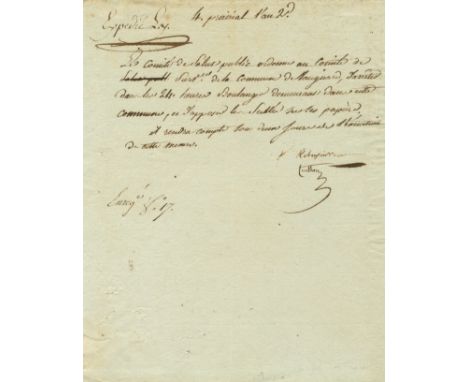 Expedié
4. prairial l'an 2.d
Le Comité de Salut public ordonne au Comité de
Salut publ Surv.ce de la Commune de d'arrêter
dans les 24. heures Boulanger demeurant dans cette
commune, et d'apposer les Scellés sur ses papiers,
et rendra compte sous deux jours de l'exécution
de cette mesure.
Robespierre
Enreg.é 17.